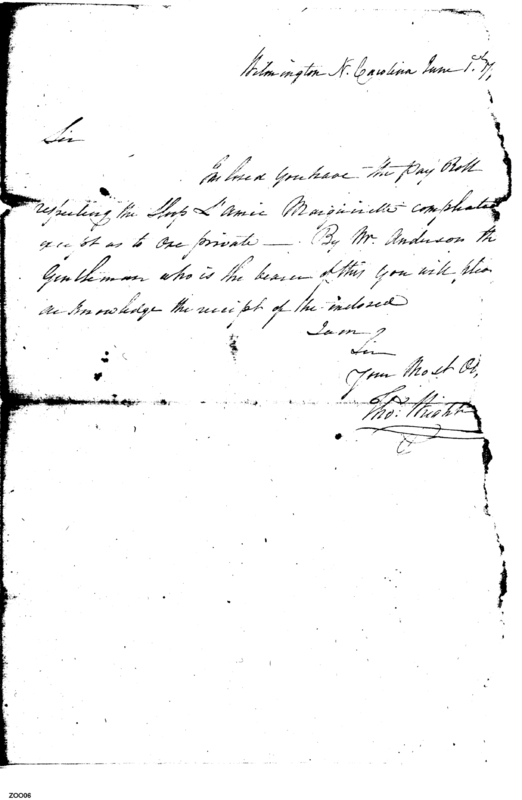 Wilmington N. Carolina June 1st
Sir
Inclosed you have the pay Roll
respecting the Sloop L'amie Marguirette compleated
except as to one private — By Mr. Anderson the
Gentleman who is the bearer of this you will plea
acknowledge the receipt of the inclosed
I am
Sir
Your Most Ob,
Tho: Wright
ZOO06